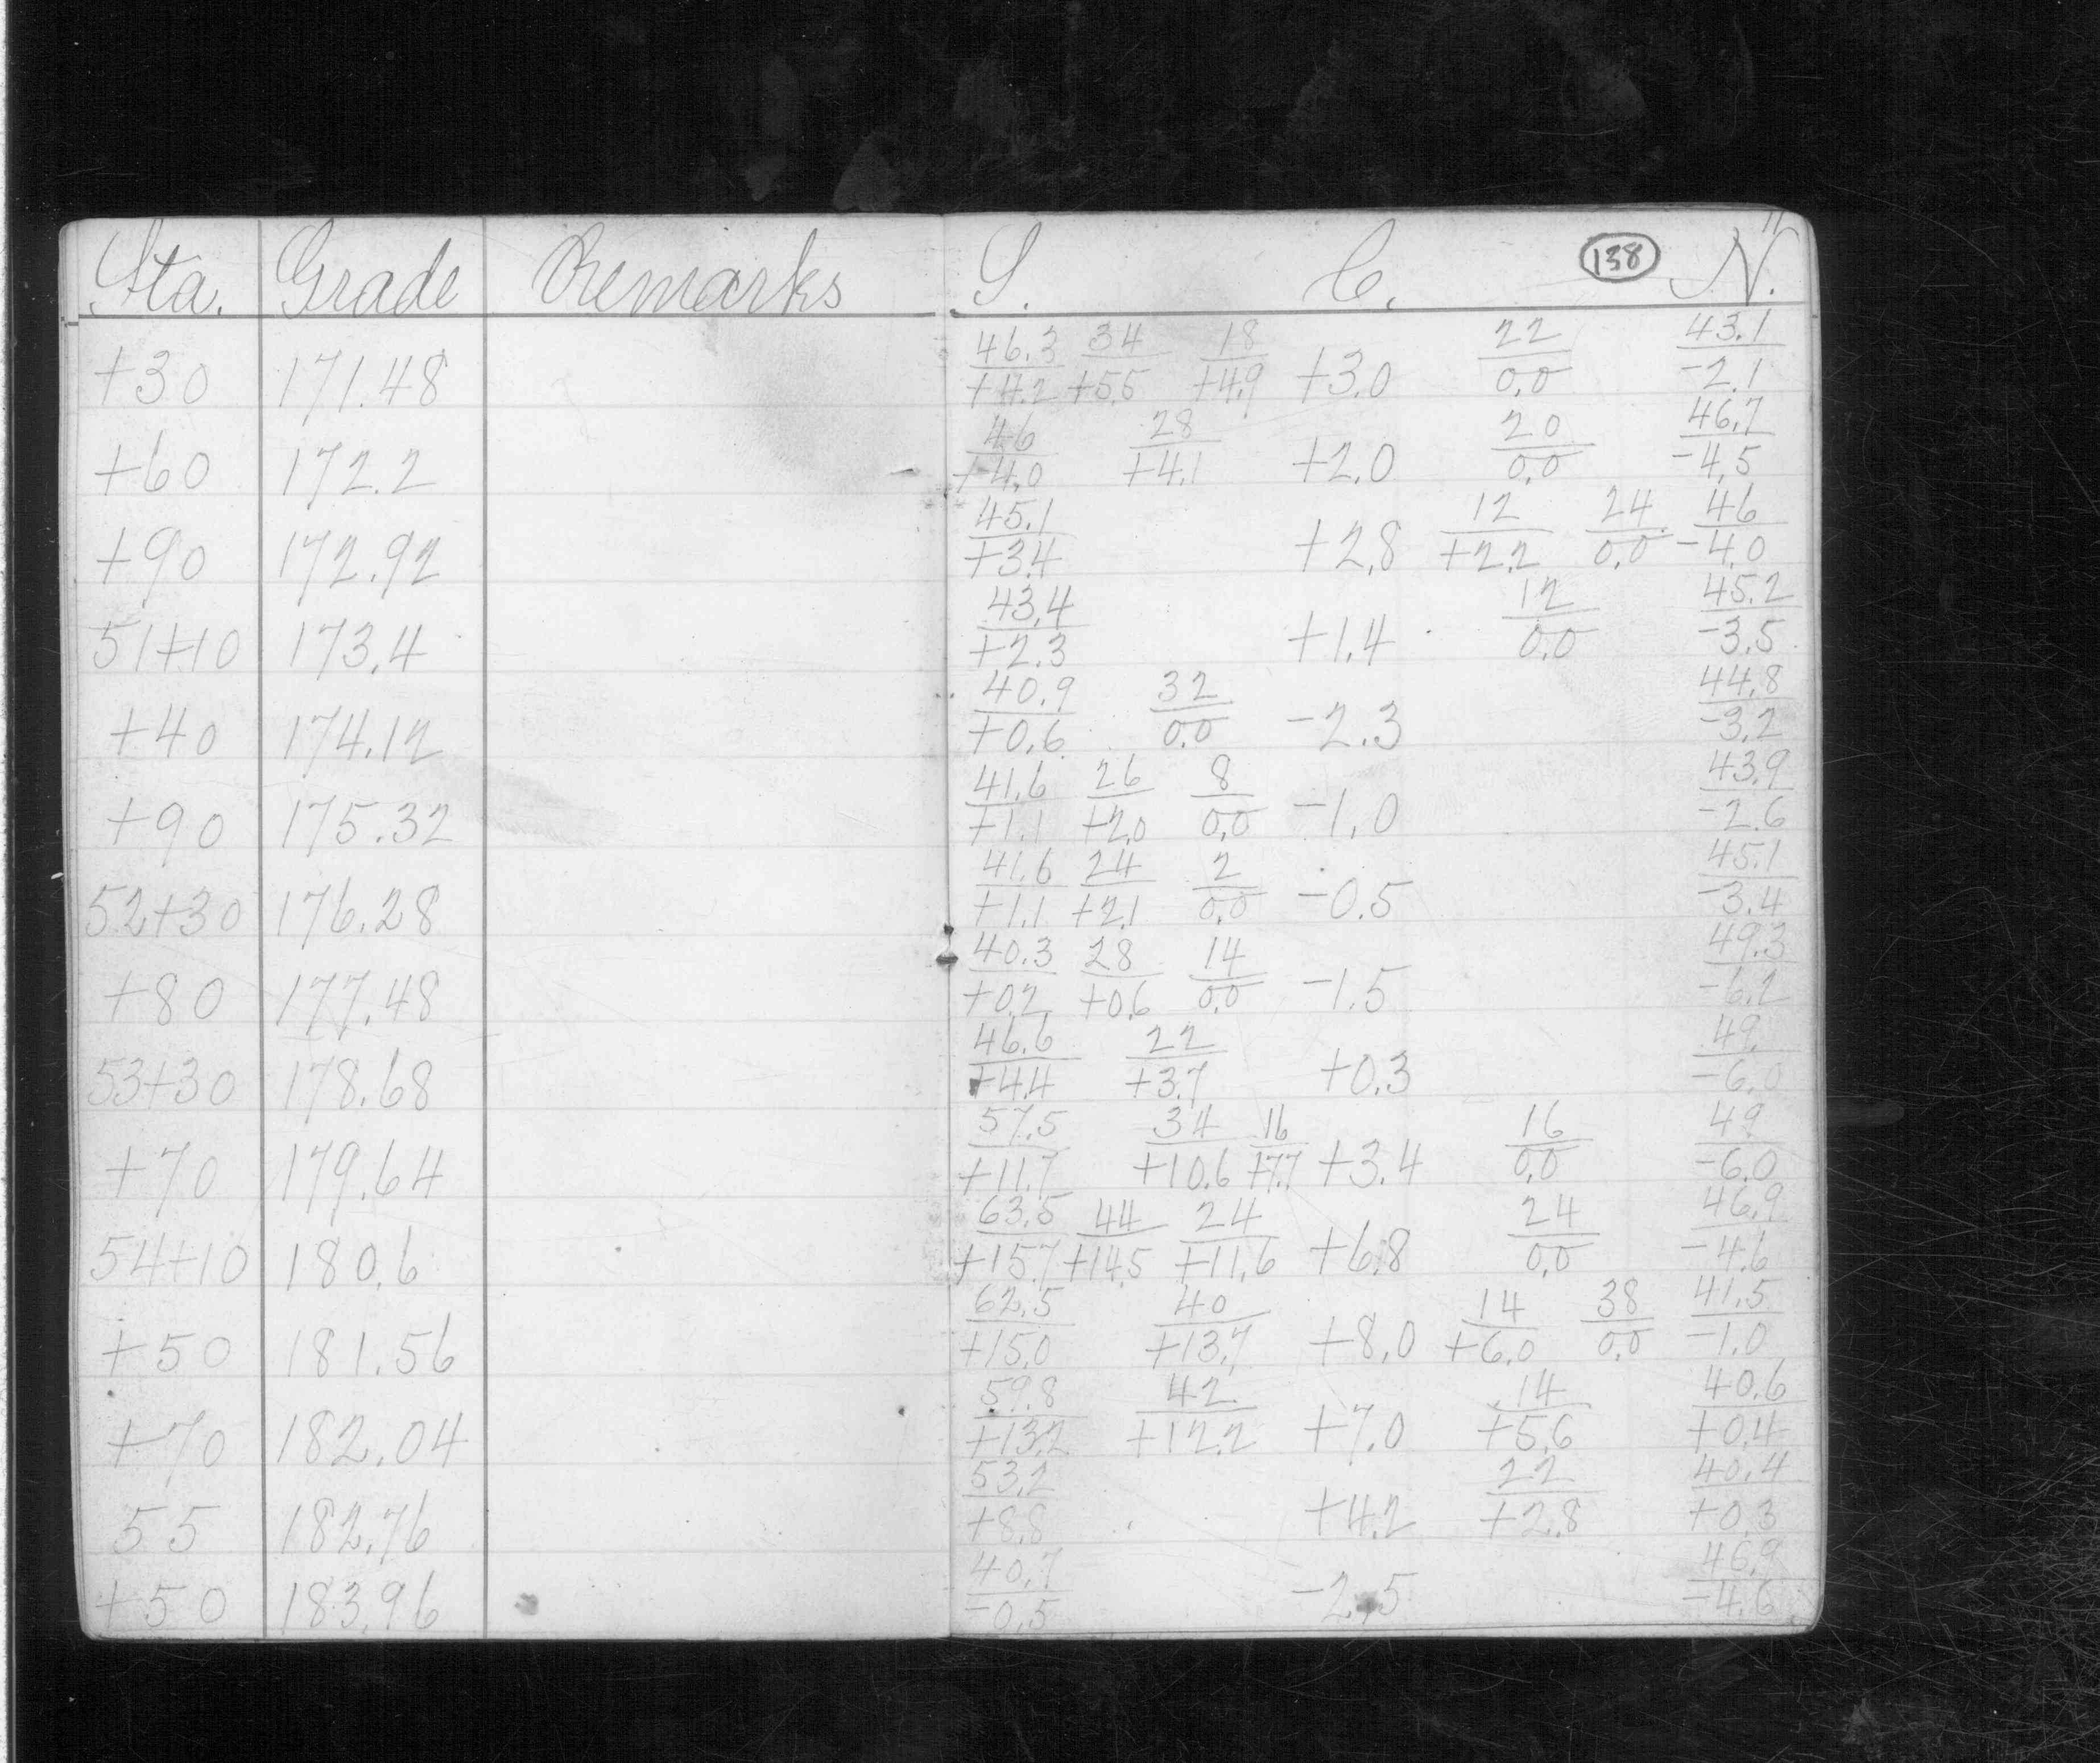 11
Sta. Grade Remarks S. C. 138 N.
46.3 34 18 22 43.1
+30 171.48 +4.2 +5.5 +4.9 +3.0 0.0 -2.1
46 28 20 46.7
+60 172.2 +4.0 +4.1 +2.0 0.0 -4.5
45.1 12 24 46
+90 172.92 +3.4 +2.8 +2.2 0.0 -4.0
43.4 12 45.2
51+10 173.4 +2.3 +1.4 0.0 -3.5
40.9 32 44.8
+40 174.12 +0.6 0.0 -2.3 -3.2
41.6 26 8 43.9
+90 175.32 +1.1 +2.0 0.0 -1.0 -2.6
41.6 24 2 45.1
52+30 176.28 +1.1 +2.1 0.0 -0.5 -3.4
40.3 28 14 49.3
+80 177.48 +0.2 +0.6 0.0 -1.5 -6.2
46.6 22 49.
53+30 178.68 +4.4 +3.7 +0.3 -6.0
57.5 34 16 16 49
+70 179.64 +11.7 +10.6 +7.7 +3.4 0.0 -6.0
63.5 44 24 24 46.9
54+10 180.6 +15.7 +14.5 +11.6 +6.8 0.0 -4.6
62.5 40 14 38 41.5
+50 181.56 +15.0 +13.7 +8.0 +6.0 0.0 -1.0
59.8 42 14 40.6
+70 182.04 +13.2 +12.2 +7.0 +5.6 +0.4
53.2 22 40.4
55 182.76 +8.8 +4.2 +2.8 +0.3
40.7 46.9
+50 183.96 -0.5 -2.5 -4.6